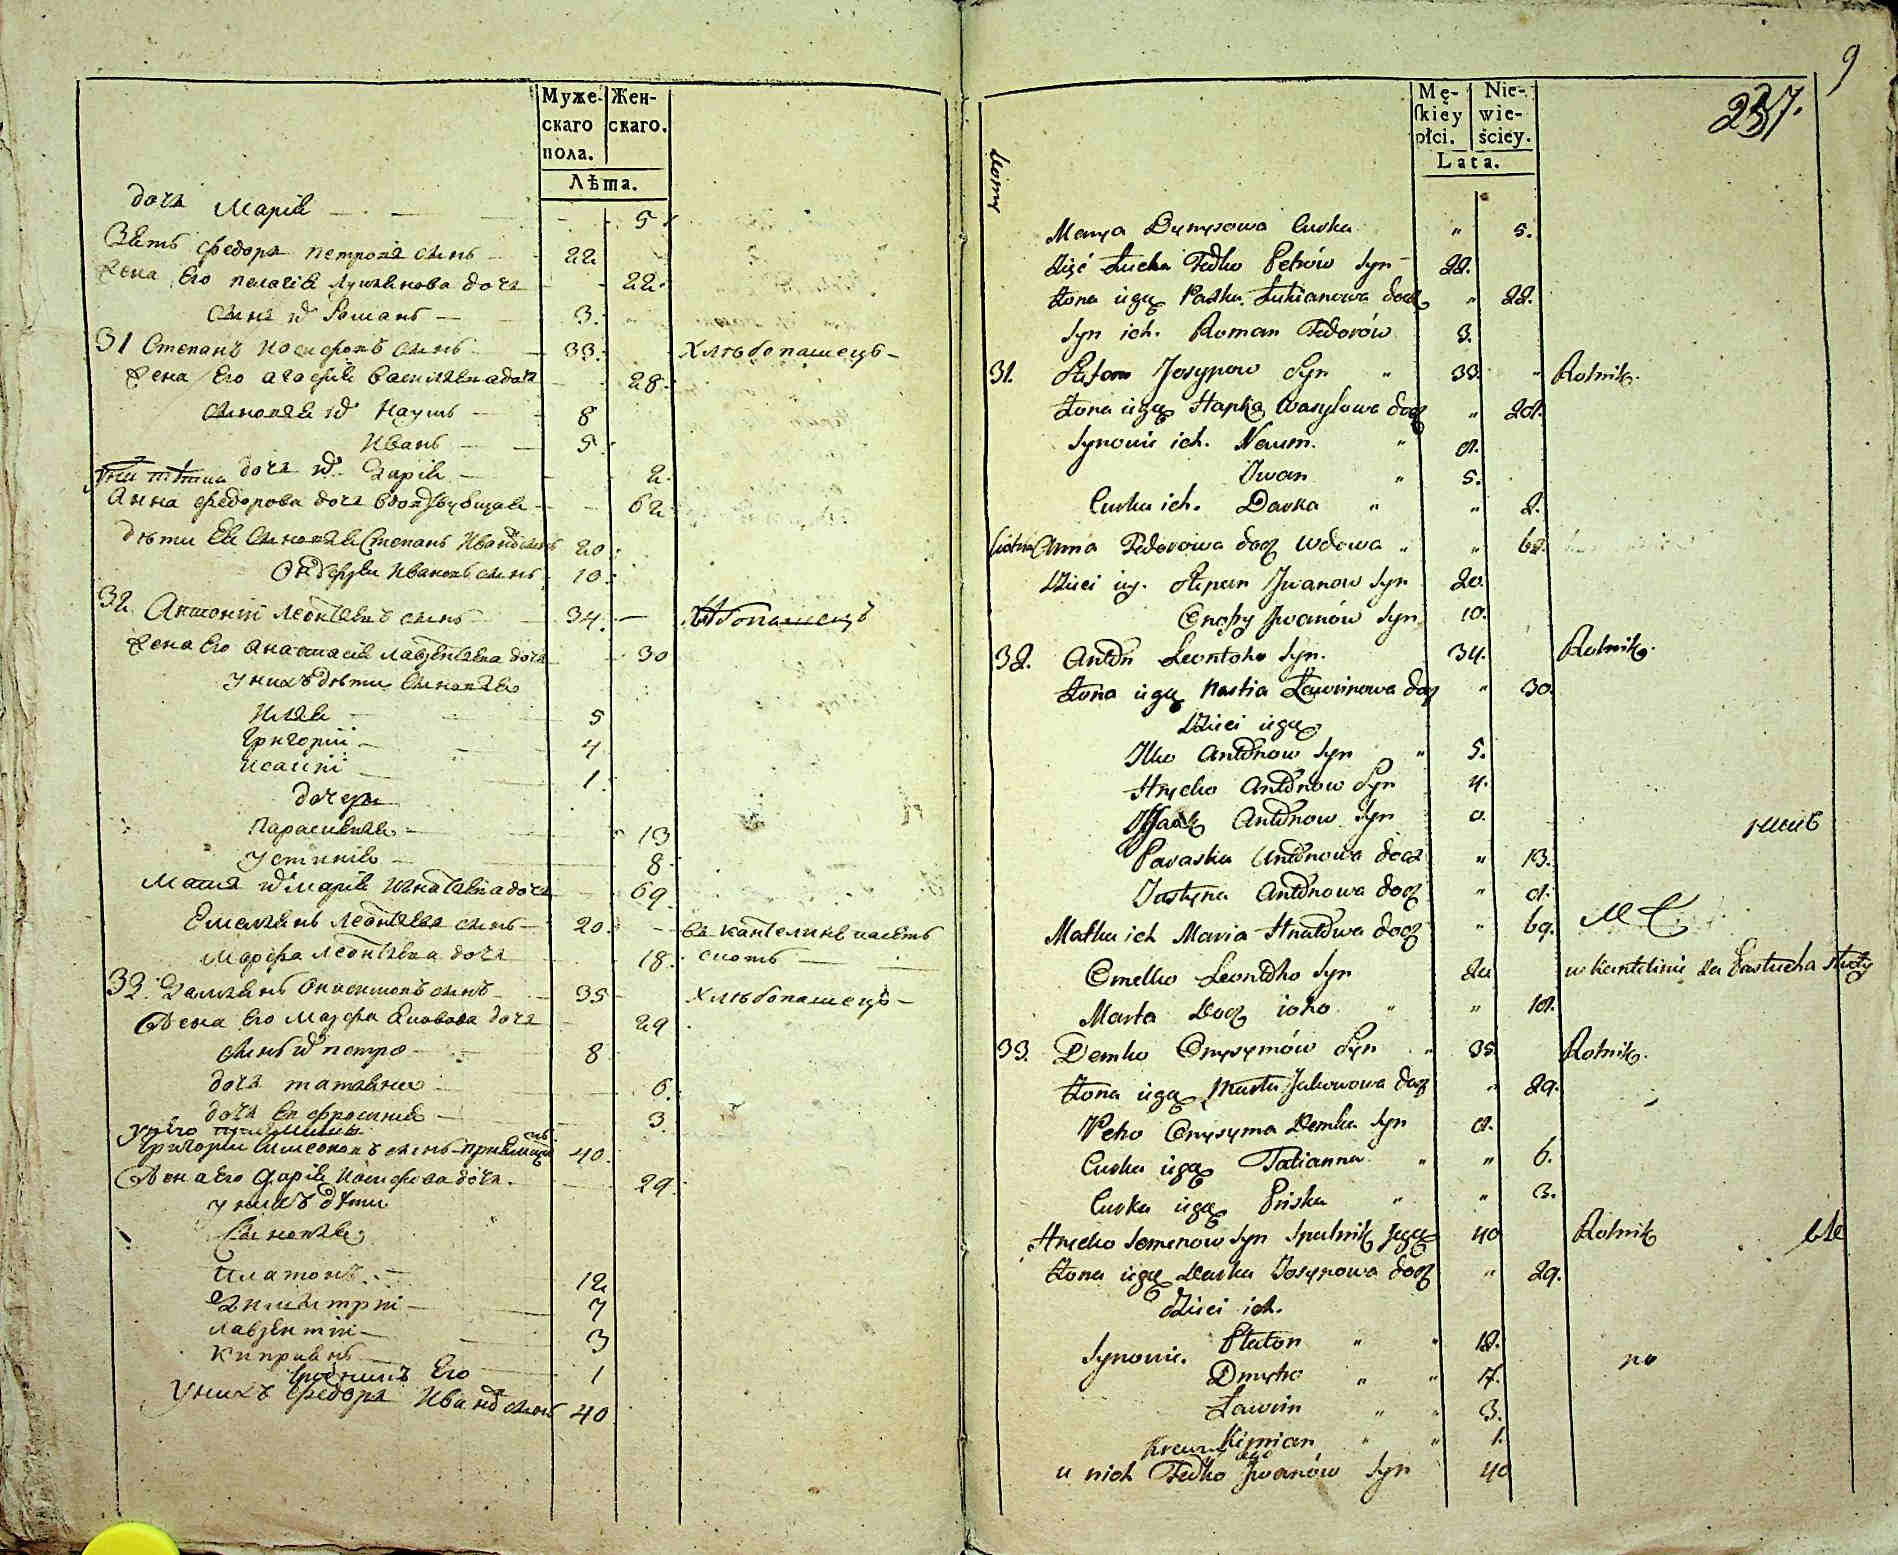 Муже-
скаго
пола.
Жен-
скаго.
Лѣта.
дочь Марія 5
Зять Федоръ Петровъ сынъ 22
Жена Его Пелагія Лукьянова дочь 22
Сынъ их Романъ 3
31 Степанъ Иосифовъ сынъ 33 Хлѣбопашецъ
Жена Его Агафія Васильева дочь 28
Сыновья их Наумъ 8
Иванъ 5
дочь их Дарія 2
Анна Федорова дочь 62
дѣти Ея Сыновья Степанъ Иванов сынъ 20
Иванов сынъ 10
32 Антоній Леонтьевъ сынъ 34
Жена Его Анастасія Лаврентьева дочь 30
у нихъ дѣти Сыновья
Илья 5
Григорій 4
Исаакій 1
дочери
Параскевія 13
Устинія 8
Мать их Марія Игнатьева дочь 69
Емельянъ Леонтьевъ сынъ 20
Марфа Леонтьева дочь 18 скотъ
33 Дамьянъ Онисимовъ сынъ 35 Хлѣбопашецъ
Жена Его Марфа Яковова дочь 29
Сынъ их Петро 8
дочь Татьяна 6
дочь Евфросинія 3
Григорій Симеоновъ сынъ 40
Жена Его Дарія Иосифова дочь 29
у нихъ дѣти
Сыновья
Платонъ 12
Димитрій 7
Лаврентій 3
Кипріянъ 1
У нихъ Федоръ Иванов сынъ 40
9
Mę-
skiey
płci.
Nie-
wie-
ściey.
Lata.
237.
Marya Dymysowa Curka " 5.
Zięć Fedko Petrów Syn 22.
Żona iego Paska Łukianowa docz " 22.
Syn ich Roman Fedorów 3.
31. Stefan Josypow Syn " 33. " Rolnik.
Żona iego Hapka Wasylowa docz " 28.
Synowie ich. Naum. " 8.
Iwan " 5.
Curka ich. Darka " " 2.
Anna Fedorowa docz Wdowa " " 62.
Dzieci iey. Stepan Jwanow Syn 20.
Jwanów Syn 10.
32. Anton Leontoho Syn. 34. Rolnik.
Żona iego Nastia Ławrinowa docz " 30.
Dzieci iego
Ilko Antonow Syn " 5.
Hrycko Antonow Syn 4.
Antonow Syn
Paraska Antonowa docz " 13.
Justyna Antonowa docz " 8.
Matka ich Maria Hnatowa docz " 69.
Omelko Leontoho Syn 20
Marta Docz ioho " " 18.
33. Demko Onysymów Syn " 35. Rolnik.
Żona iego Marta Jakowowa docz " 29.
Petro Onysyma Demka Syn 8.
Curka iego Tatianna " " 6.
Curka iego Priska " " 3.
Hrycko Semenow Syn Spulnik Jego 40 Rolnik
Żona iego Darka Josypowa docz " 29.
Dzieci ich.
Synowie. Platon " " 12.
Dmytro " " 7.
Ławrin " " 3.
Kiprian " " 1.
u nich Fedko Jwanów Syn 40